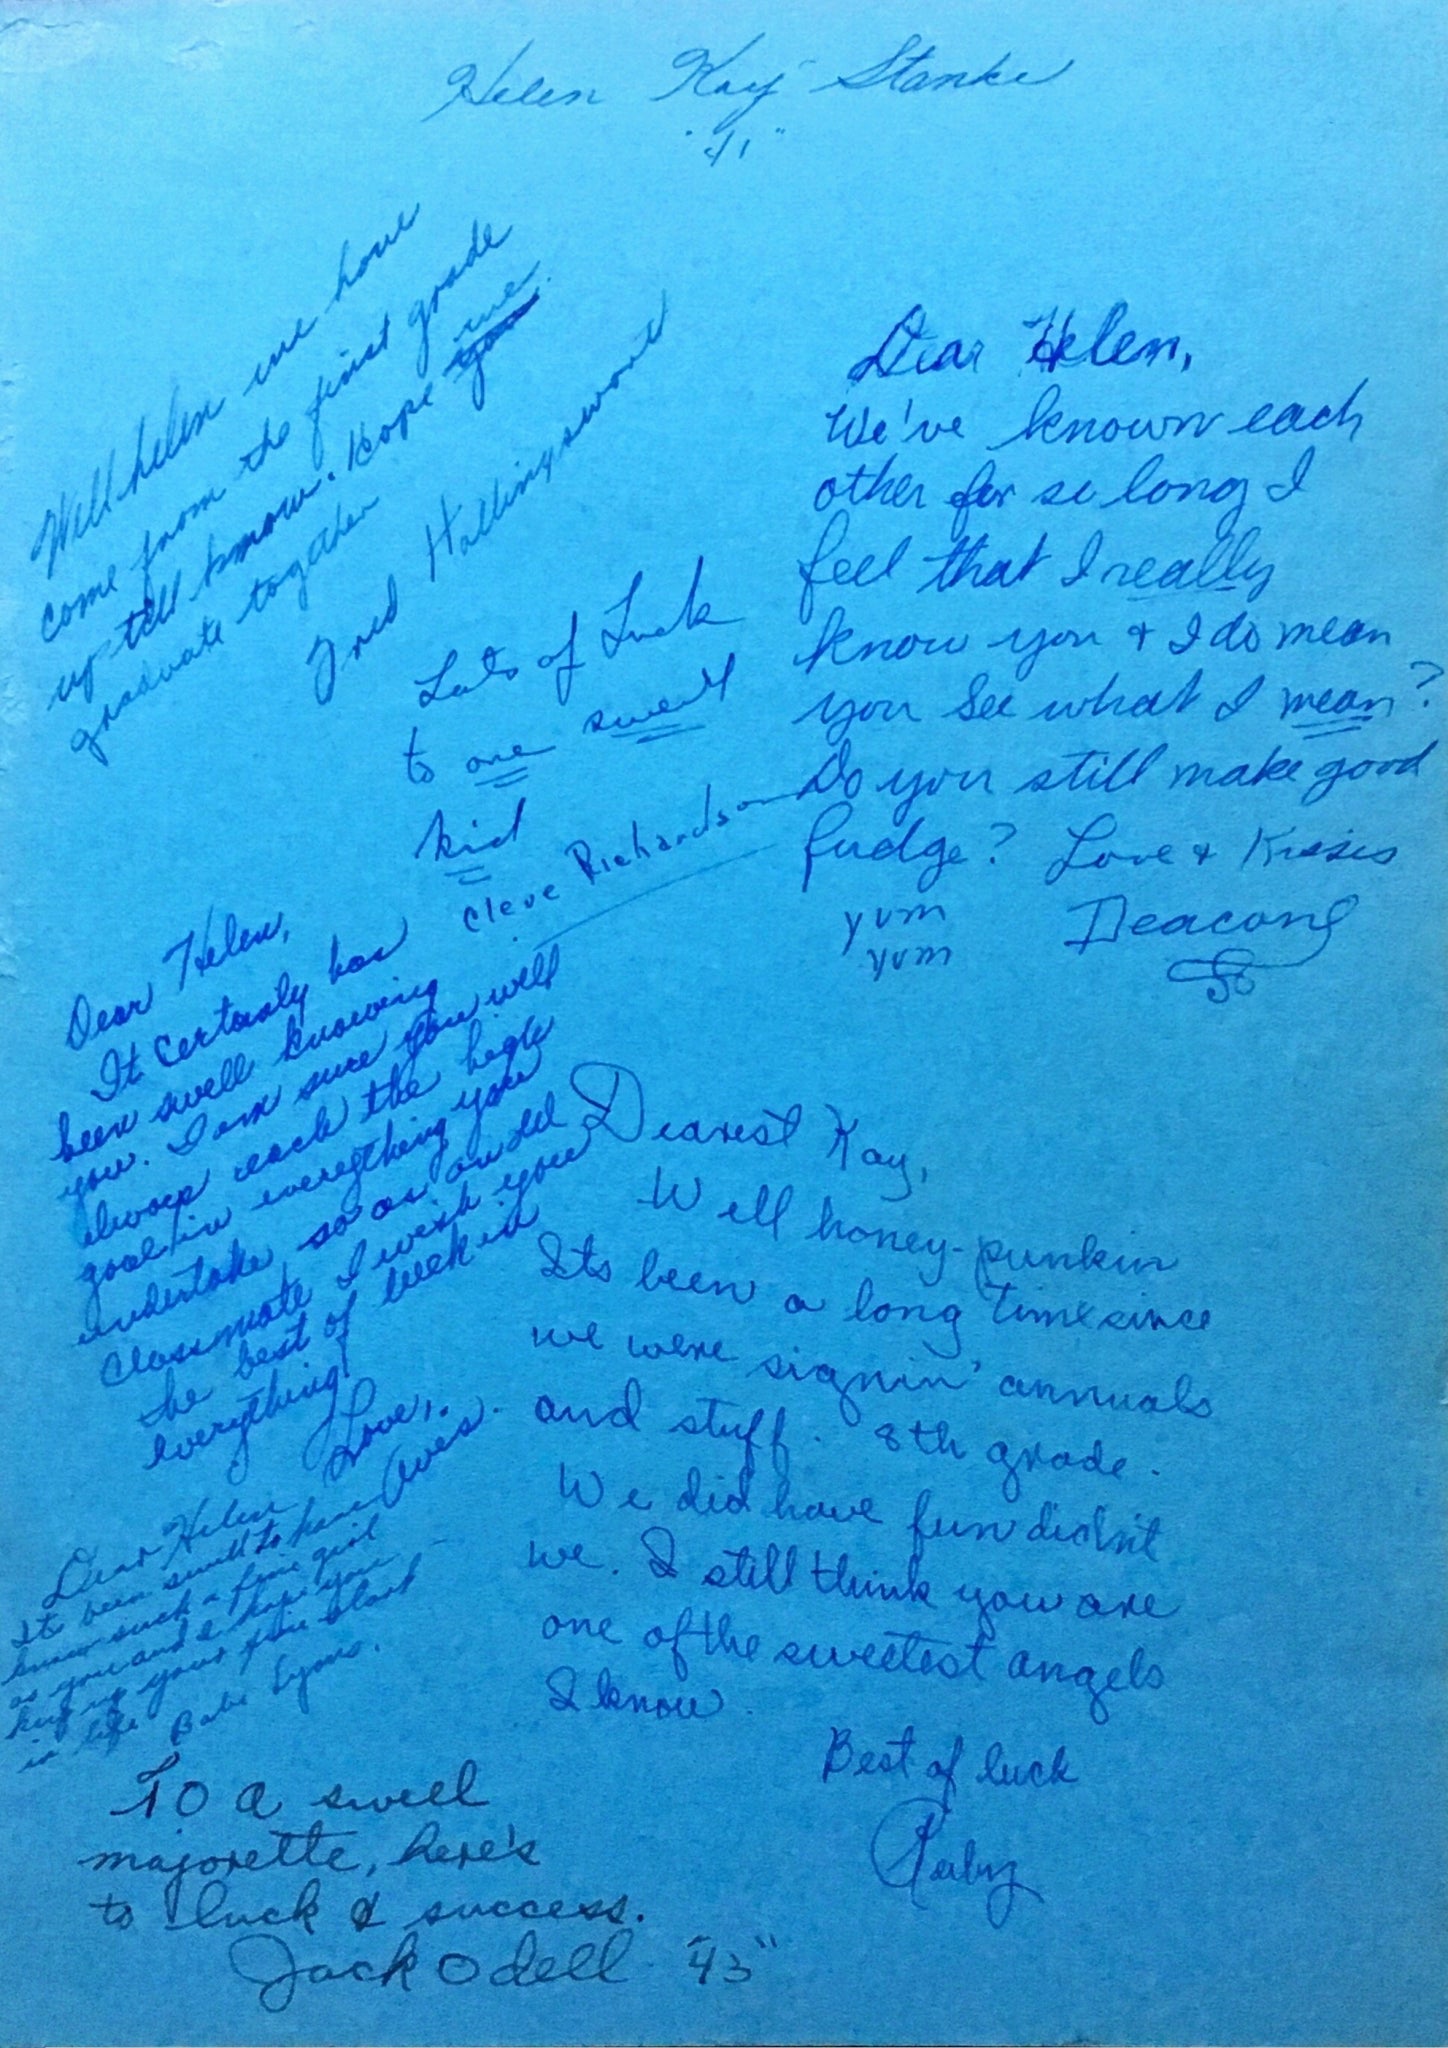 Helen Kay Stanke
"41"
Well helen we have
come from the first grade
up till know. Hope we
graduate together
Fred Hollingswort
Dear Helen,
We've known each
other for so long I
feel that I really
know you & I do mean
you see what I mean?
Do you still make good
fudge? Love & Kisses
yum
yum
Deacon
Lots of Luck
to one swell
kid
Cleve Richardson
Dear Helen,
It certainly has
been swell knowing
you. I am sure you will
always reach the high
goal in everything you
undertake, so as an old
classmate I wish you
the best of luck in
everything
Love,
Dearest Kay,
Well honey-punkin
Its been a long time since
we were signin' annuals
and stuff. 8th grade.
We did have fun didn't
we. I still think you are
one of the sweetest angels
I know.
Best of luck
Dear Helen
It's been swell to have
known such a fine girl
as you and I hope you
keep up your fine start
in life
Babe Lyons.
To a swell
majorette, here's
to luck & success.
Jack Odell "43"